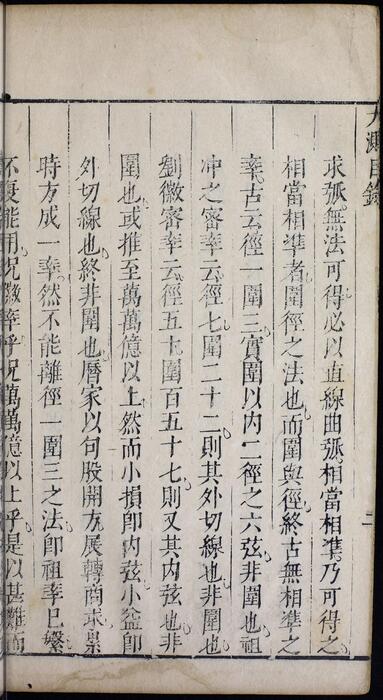 大測目錄
二
求弧無法可得必以直線曲弧相當相準乃可得之
相當相準者圍徑之法也而圍與徑終古無相準之
率古云徑一圍三實圍以內二徑之六弦非圍也祖
冲之密率云徑七圍二十二則其外切線也非圍也
劉徽密率云徑五十圍百五十七則又其內弦也非
圍也或推至萬萬億以上然而小損即內弦小益即
外切線也終非圍也曆家以句股開方展轉商求累
時方成一率然不能離徑一圍三之法即祖率已繁
不復能用况徽率乎况萬萬億以上乎是以甚難而